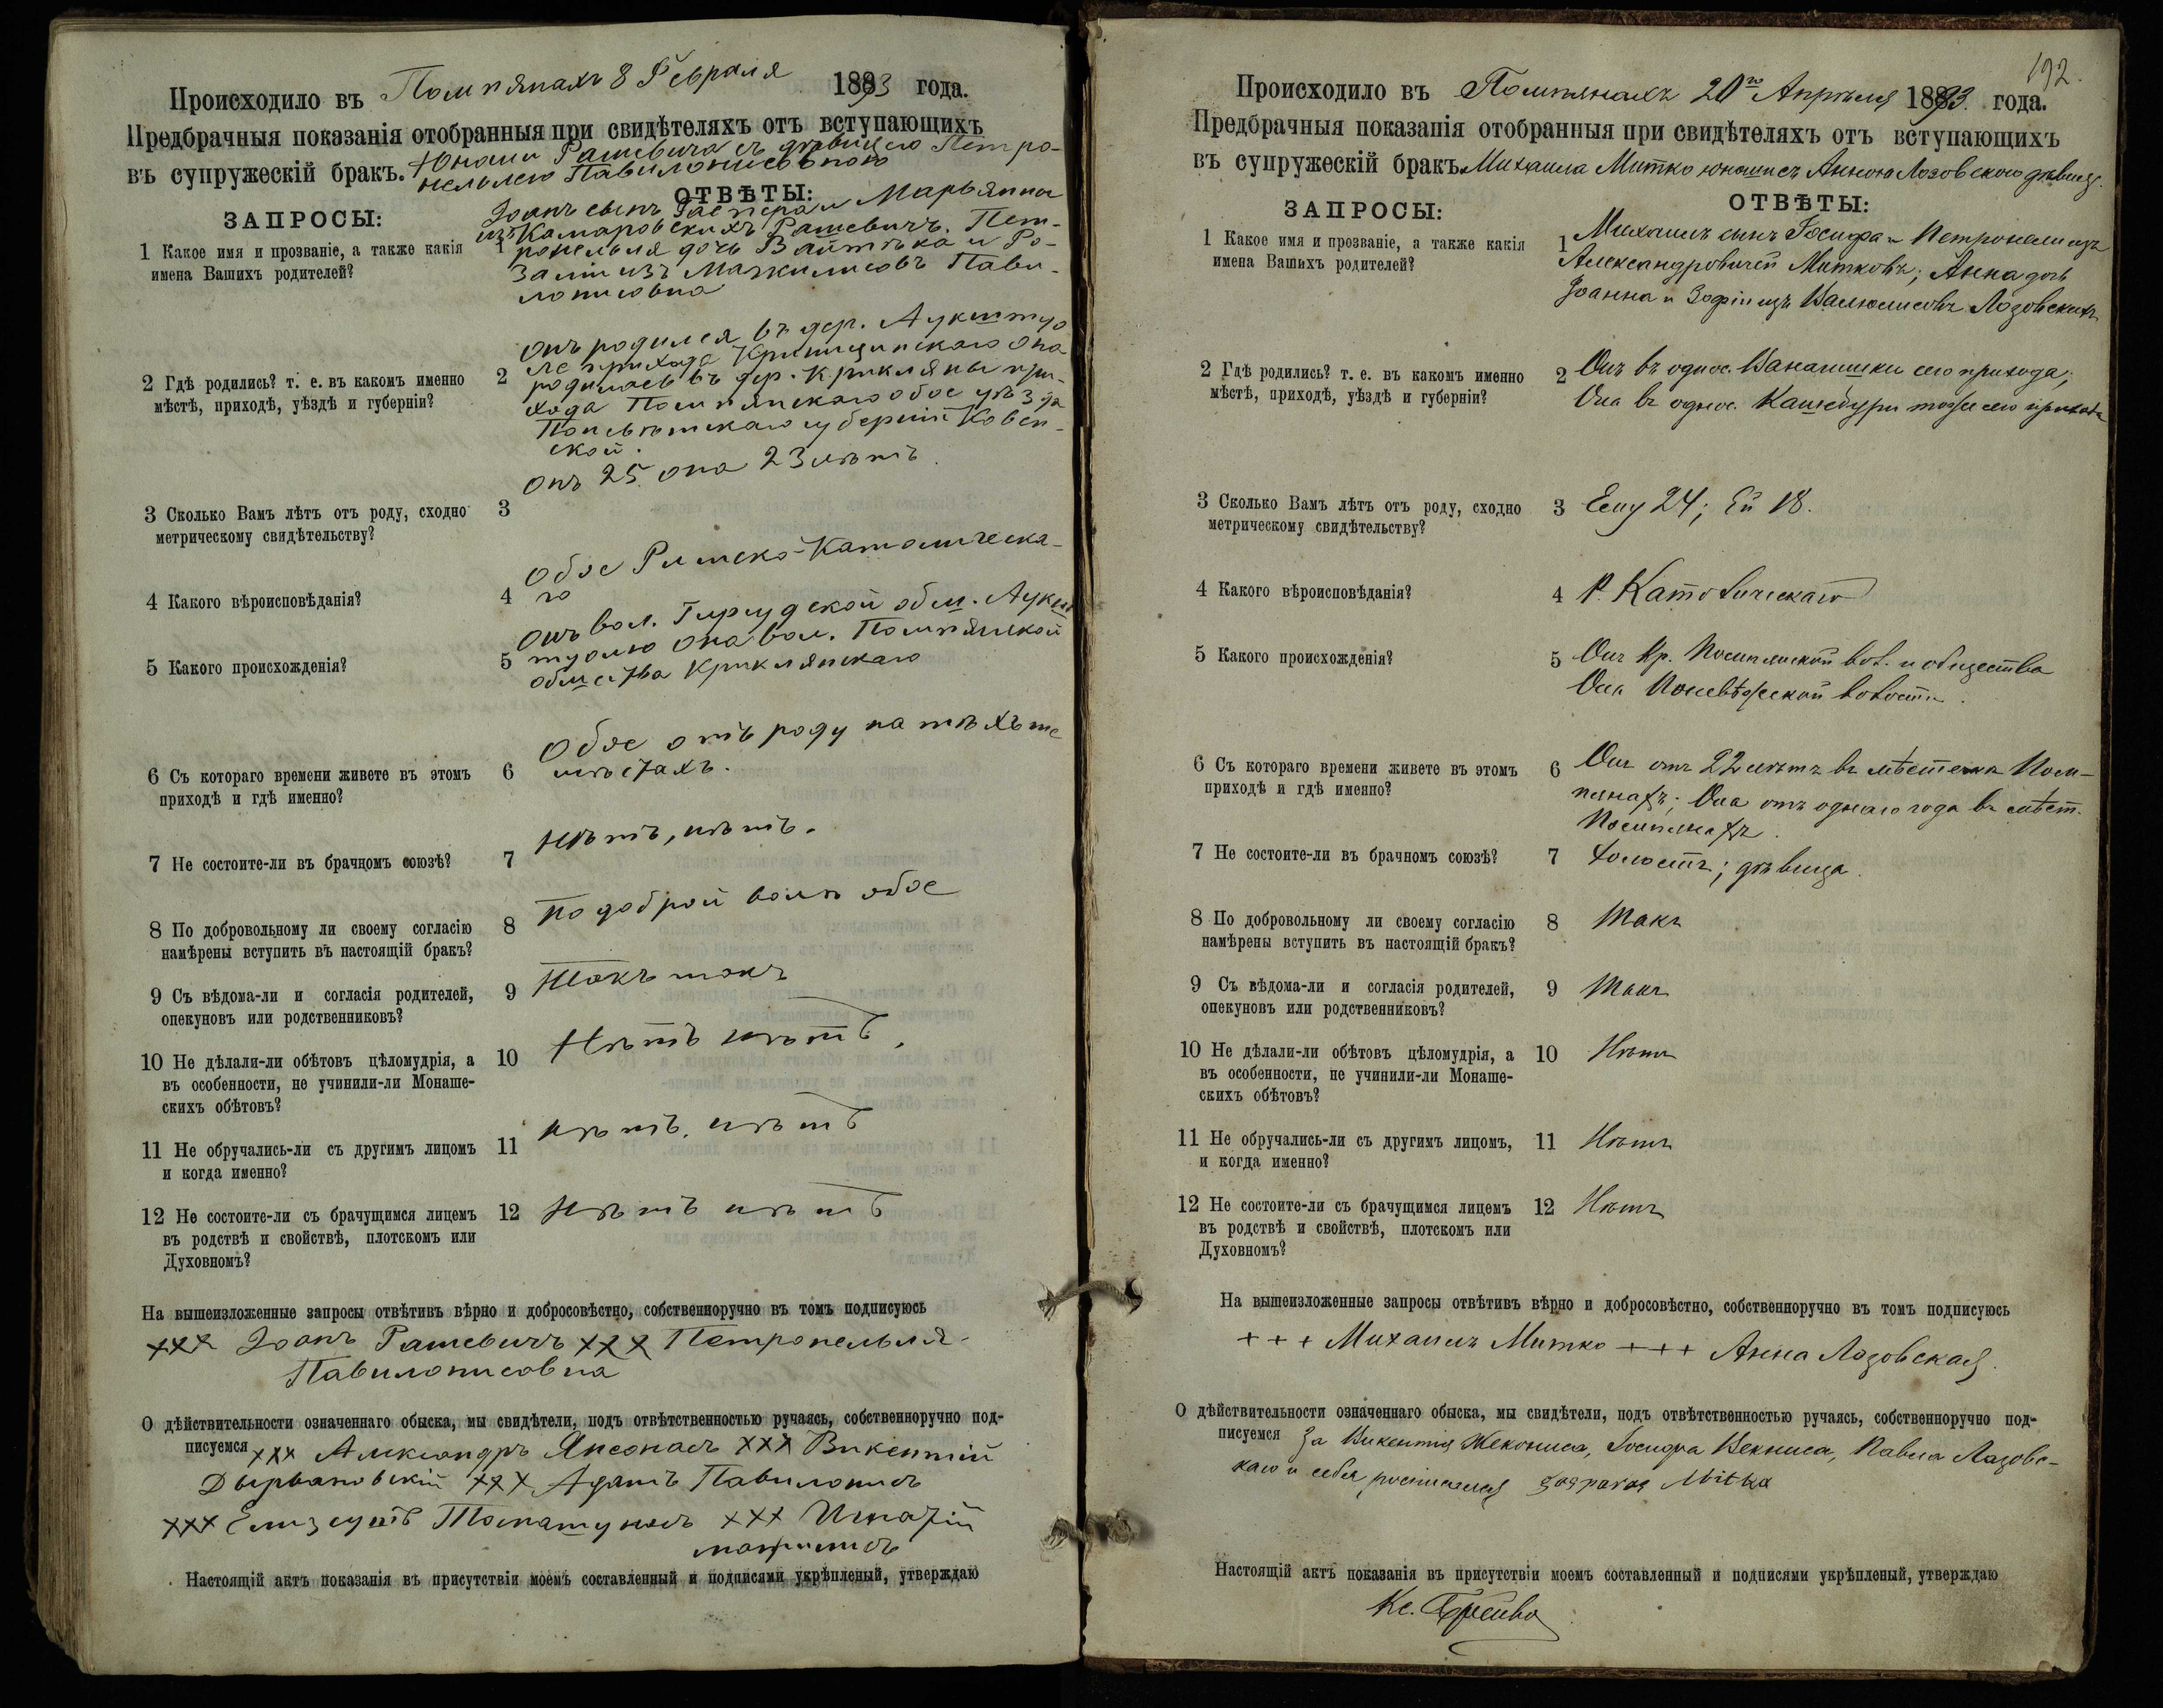 Происходило въ Помпянахъ 8 Февраля 1893 года.
Предбрачныя показанія отобранныя при свидѣтеляхъ отъ вступающихъ
въ супружескій бракъ. Юнаши Рашевича съ дѣвицею Петро-
нелълею Павилонисовною
ЗАПРОСЫ:
ОТВѢТЫ:
1 Какое имя и прозваніе, а также какія
имена Вашихъ родителей?
1 Іоанъ сынъ Гаспера и Марьянны
изъ Камаровскихъ Рашевичъ. Пет-
ронелъля дочъ Вайтѣка и Ро-
заліи изъ Мажилисовъ Пави-
лонисовна
2 Гдѣ родились? т. е. въ какомъ именно
мѣстѣ, приходѣ, уѣздѣ и губерніи?
2 онъ родился въ дер.
прихода она
родилась въ дер. Крикляны при-
хода Помпянскаго обое уѣзда
Поневѣжскаго губерніи Ковен-
ской.
3 Сколько Вамъ лѣтъ отъ роду, сходно
метрическому свидѣтельству?
3 онъ 25 она 23 лѣтъ.
4 Какого вѣроисповѣданія?
4 обое Римско-Католическа-
го
5 Какого происхожденія?
5 онъ вол.
она вол. Помпянской
общества Криклянскаго
6 Съ котораго времени живете въ этомъ
приходѣ и гдѣ именно?
6 Обое отъ роду на тѣхъ же
мѣстахъ.
7 Не состоите-ли въ брачномъ союзѣ?
7 Нѣтъ, нѣтъ.
8 По добровольному ли своему согласію
намѣрены вступить въ настоящій бракъ?
8 по доброй волѣ обое
9 Съ вѣдома-ли и согласія родителей,
опекуновъ или родственниковъ?
9 Такъ такъ
10 Не дѣлали-ли обѣтовъ цѣломудрія, а
въ особенности, не учинили-ли Монаше-
скихъ обѣтовъ?
10 Нѣтъ нѣтъ.
11 Не обручались-ли съ другимъ лицомъ
и когда именно?
11 нѣтъ. нѣтъ
12 Не состоите-ли съ брачущимся лицемъ
въ родствѣ и свойствѣ, плотскомъ или
Духовномъ?
12 нѣтъ нѣтъ
На вышеизложенные запросы отвѣтивъ вѣрно и добросовѣстно, собственноручно въ томъ подписуюсь
ххх Іоанъ Рашевичъ ххх Петронелъля
Павилонисовна
О дѣйствительности означеннаго обыска, мы свидѣтели, подъ отвѣтственностью ручаясь, собственноручно под-
писуемся ххх Александръ Янсонасъ ххх Викентій
Дырвановскій ххх Адамъ Павилонисъ
ххх ххх Игнатій
Мажилисъ
Настоящій актъ показанія въ присутствіи моемъ составленный и подписями укрѣпленый, утверждаю
192.
Происходило въ Помпянахъ 20го Апрѣля 1893. года.
Предбрачныя показанія отобранныя при свидѣтеляхъ отъ вступающихъ
въ супружескій бракъ. Михаила Митко юноши съ Анною Лозовскою дѣвицъ.
ЗАПРОСЫ:
ОТВѢТЫ:
1 Какое имя и прозваніе, а также какія
имена Вашихъ родителей?
1 Михаилъ сынъ Іосифа и Петронели изъ
Александровичей Митковъ; Анна дочь
Іоанна и Зофіи изъ Лозовскихъ
2 Гдѣ родились? т. е. въ какомъ именно
мѣстѣ, приходѣ, уѣздѣ и губерніи?
2 Онъ въ околос. сего прихода;
Она въ околос. тоже сего прихода
3 Сколько Вамъ лѣтъ отъ роду, сходно
метрическому свидѣтельству?
3 Ему 24; Ей 18.
4 Какого вѣроисповѣданія?
4 Р. Католическаго
5 Какого происхожденія?
5 Онъ кр. Помпянской вол. и общества
Она Поневѣжской волости.
6 Съ котораго времени живете въ этомъ
приходѣ и гдѣ именно?
6 Онъ отъ 22 лѣтъ въ мѣстечкѣ Пом-
пянахъ; Она отъ одного года въ мѣст.
Помпянахъ.
7 Не состоите-ли въ брачномъ союзѣ?
7 Холостъ; дѣвица.
8 По добровольному ли своему согласію
намѣрены вступить въ настоящій бракъ?
8 Такъ
9 Съ вѣдома-ли и согласія родителей,
опекуновъ или родственниковъ?
9 Такъ
10 Не дѣлали-ли обѣтовъ цѣломудрія, а
въ особенности, не учинили-ли Монаше-
скихъ обѣтовъ?
10 Нѣтъ
11 Не обручались-ли съ другимъ лицомъ,
и когда именно?
11 Нѣтъ
12 Не состоите-ли съ брачущимся лицемъ
въ родствѣ и свойствѣ, плотскомъ или
Духовномъ?
12 Нѣтъ
На вышеизложенные запросы отвѣтивъ вѣрно и добросовѣстно, собственноручно въ томъ подписуюсь
+ + + Михаилъ Митко + + + Анна Лозовская.
О дѣйствительности означеннаго обыска, мы свидѣтели, подъ отвѣтственностью ручаясь, собственноручно под-
писуемся За Викентія Жекониса, Іосифа Векниса, Павла Лазовс-
каго и себя росписался Mitka
Настоящій актъ показанія въ присутствіи моемъ составленный и подписями укрѣпленый, утверждаю
Кс.